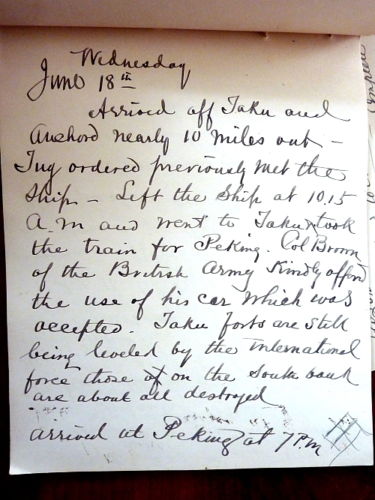 Wednesday
June 18th
Arrived off Taku and
Anchord nearly 10 miles out -
Tug ordered previously met the
Ship - Left the Ship at 10.15
A.M and went to Taku & took
the train for Peking. Col Brown
of the British Army Kindly offerd
the use of his car which was
accepted. Taku forts are still
being leveled by the international
force those on the South bank
are about all destroyed
arrived at Peking at 7 P.M